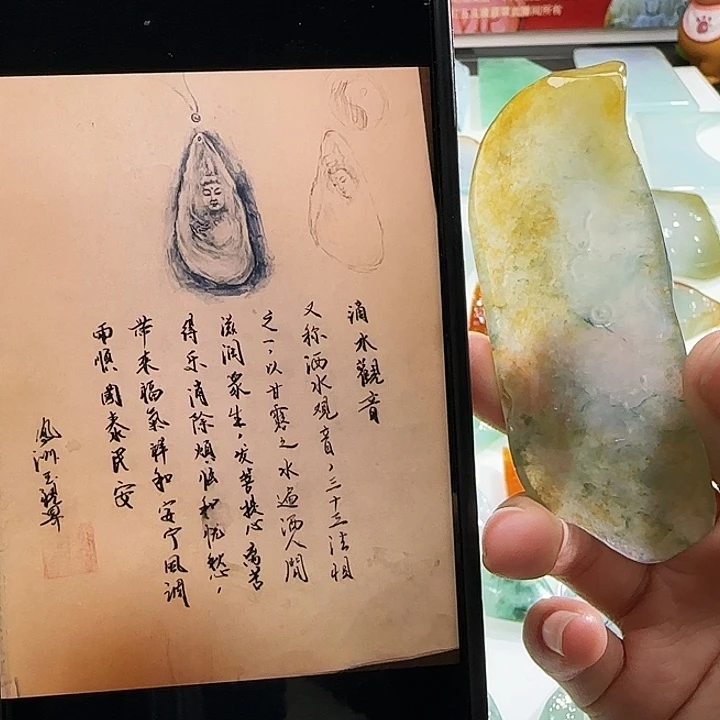 滴水觀音
又称洒水观音，三十三法相
之一，以甘露之水遍洒人間
滋润衆生，发菩提心离苦
得乐消除煩恼和忧愁，
带来福氣祥和安宁風調
雨順國泰民安